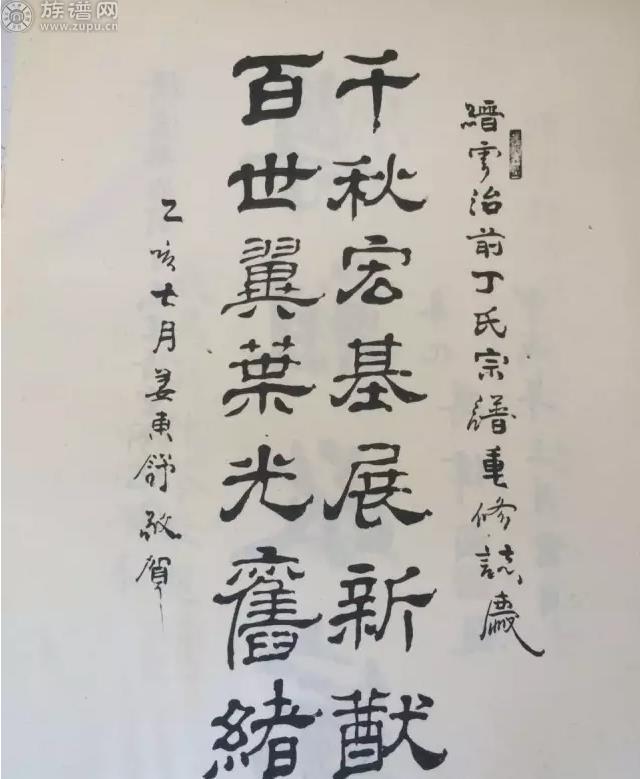 族谱网
www.zupu.cn
縉雲治前丁氏宗譜重修誌慶
千秋宏基展新猷
百世翼葉光舊緒
乙亥七月姜東舒敬賀